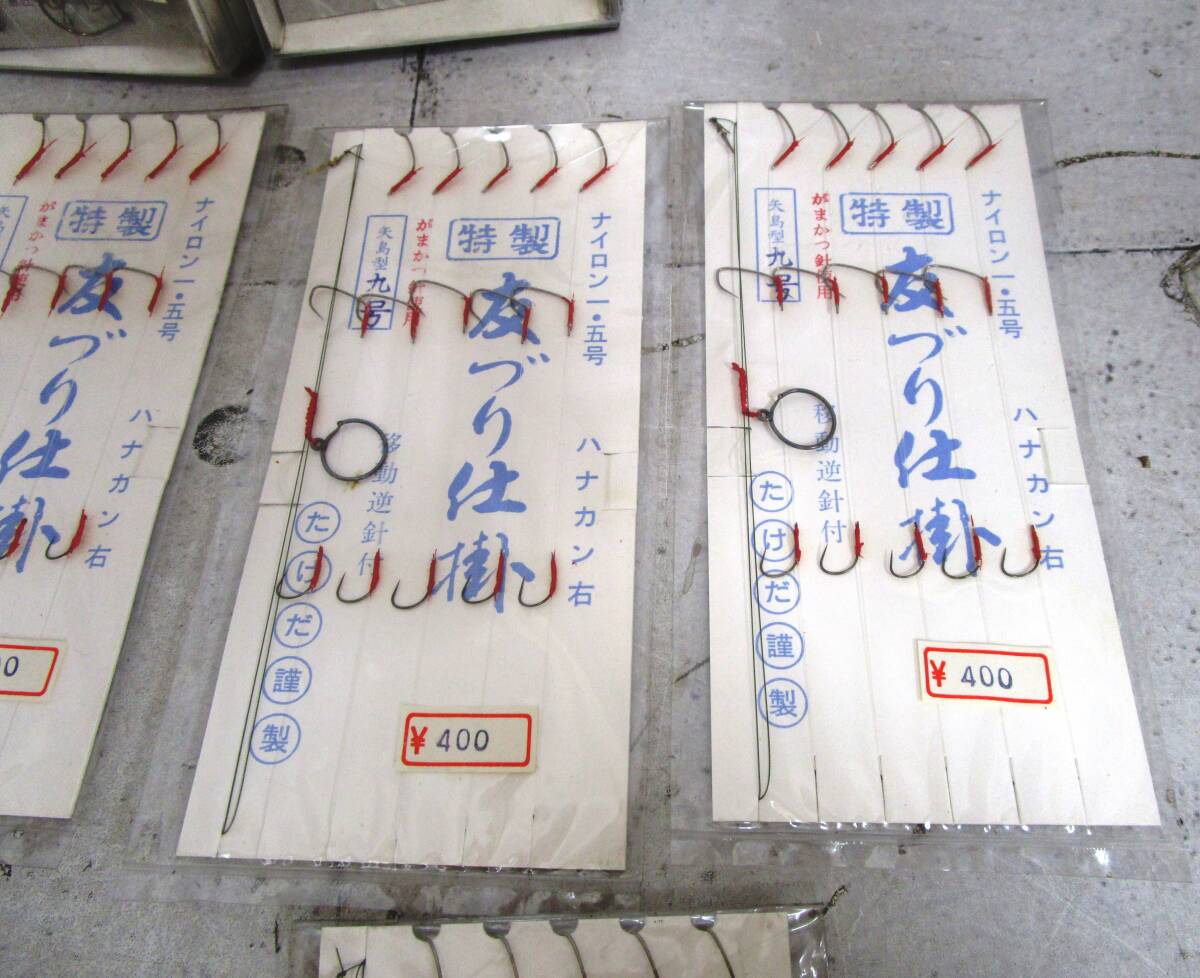 ナイロン一・五号
ハナカン右
特製
友づり仕掛
がまかつ針使用
矢島
00
ナイロン一・五号
ハナカン右
特製
友づり仕掛
移動逆針付
がまかつ針使用
矢島型九号
たけだ謹製
¥400
ナイロン一・五号
ハナカン右
特製
友づり仕掛
移動逆針付
がまかつ針使用
矢島型九号
たけだ謹製
¥400